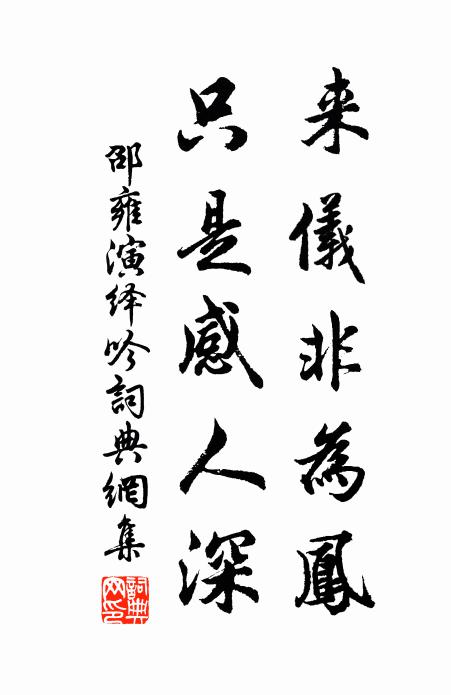 来儀非為鳳
只是感人深
邵雍演绎吟詞典網集
詞典網印